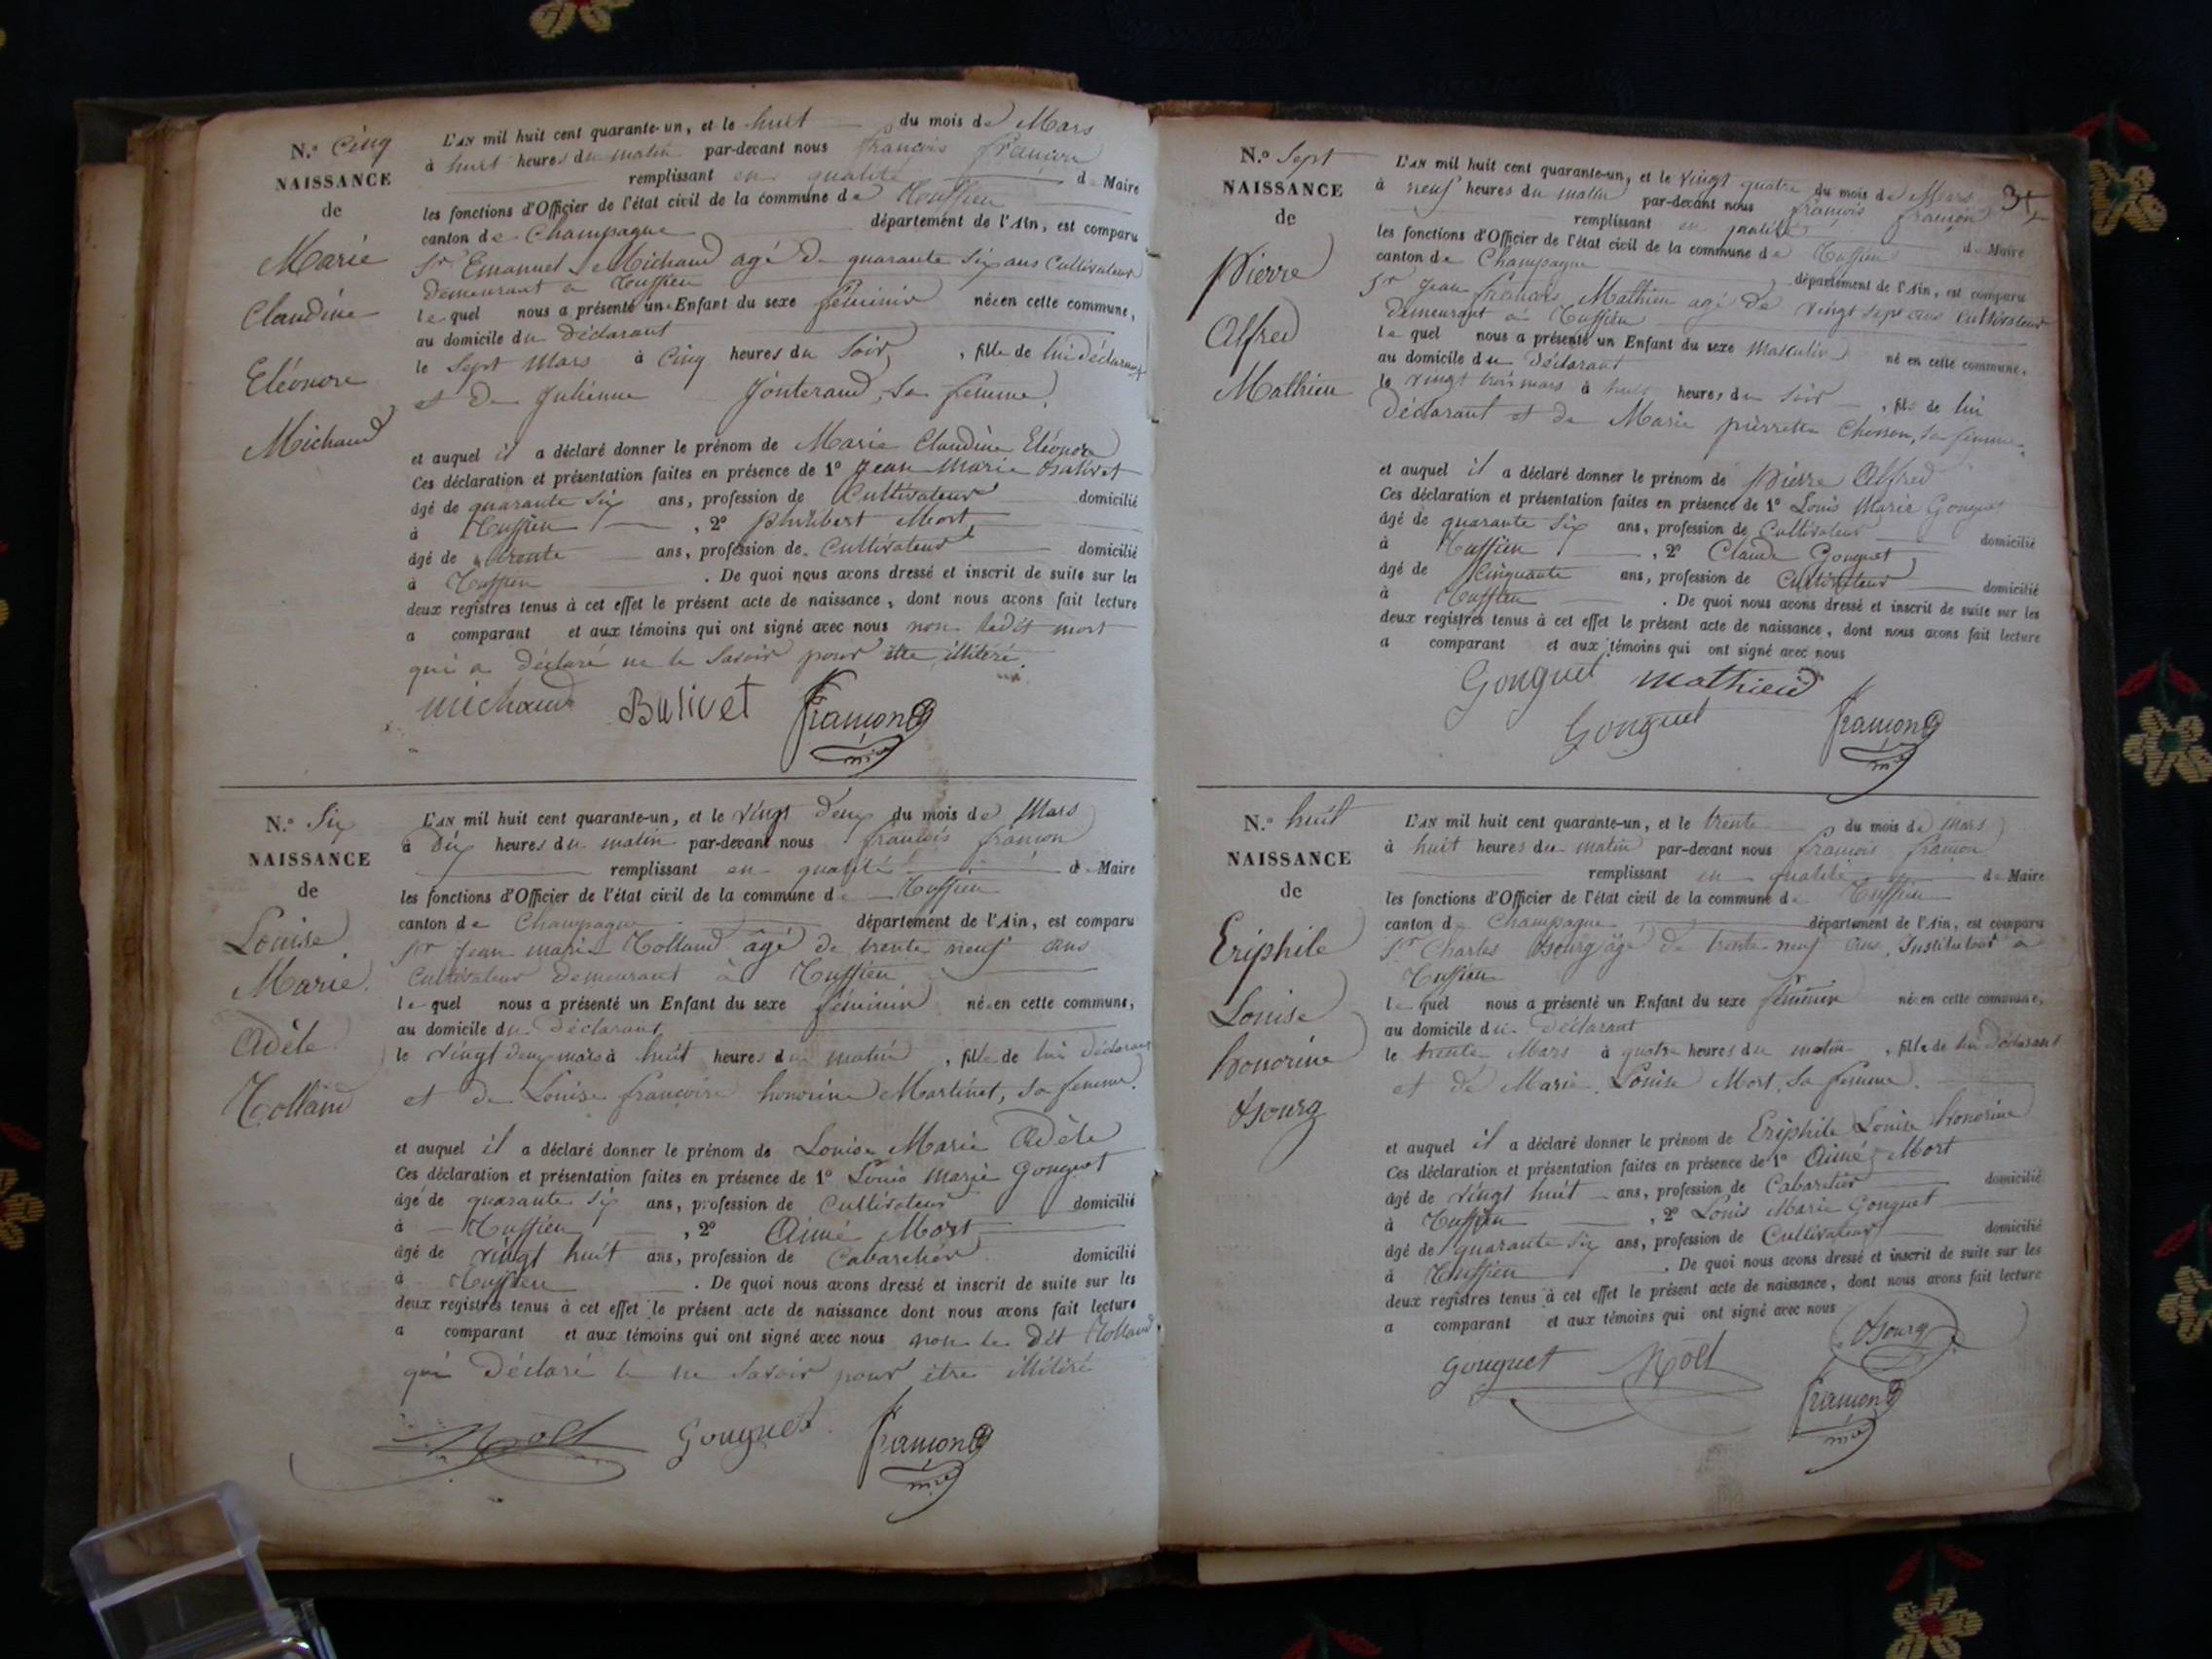 N.o Cinq
NAISSANCE
de
Marie
Claudine
Eléonore
Michaud
L'AN mil huit cent quarante-un, et le huit du mois de Mars
à huit heures du matin par-devant nous françois françon
remplissant en qualité de Maire
les fonctions d'Officier de l'état civil de la commune de
canton de Champagne département de l'Ain, est comparu
Sr Emanuel Michaud agé de quarante Six ans Cultivateur
demeurant a
lequel nous a présenté un Enfant du sexe féminin née en cette commune,
au domicile du déclarant
le Sept Mars à Cinq heures du Soir, fille de lui déclarant
et de Julienne Jonterand, Sa femme,
et auquel il a déclaré donner le prénom de Marie Claudine Eléonore
Ces déclaration et présentation faites en présence de 1o Jean Marie
âgé de quarante Six ans, profession de Cultivateur domicilié
à , 2o Philibert Mort,
âgé de trente ans, profession de Cultivateur domicilié
à . De quoi nous avons dressé et inscrit de suite sur les
deux registres tenus à cet effet le présent acte de naissance, dont nous avons fait lecture
a comparant et aux témoins qui ont signé avec nous non ledit mort
qui a déclaré ne le Savoir pour illitéré.
michaud Balivet françon
N.o Six
NAISSANCE
de
Louise
Marie
Adèle
Tolland
L'AN mil huit cent quarante-un, et le vingt deux du mois de Mars
à Dix heures du matin par-devant nous françois françon
remplissant en qualité de Maire
les fonctions d'Officier de l'état civil de la commune de
canton de Champagne département de l'Ain, est comparu
Sr Jean marie Tolland âgé de trente neuf ans
Cultivateur demeurant à
lequel nous a présenté un Enfant du sexe féminin née en cette commune,
au domicile du Déclarant
le vingt deux mars à huit heures du matin, fille de lui déclarant
et de Louise françoise honorine Martinet, sa femme.
et auquel il a déclaré donner le prénom de Louise Marie Adèle
Ces déclaration et présentation faites en présence de 1o Louis Marie Gonguet
âgé de quarante six ans, profession de Cultivateur domicilié
à , 2o Aimé Mort
âgé de vingt huit ans, profession de Cabaretier domicilié
à . De quoi nous avons dressé et inscrit de suite sur les
deux registres tenus à cet effet le présent acte de naissance dont nous avons fait lecture
a comparant et aux témoins qui ont signé avec nous non le dit Tolland
qui Déclaré le ne Savoir pour être illitéré
Gonguet françon
N.o Sept
NAISSANCE
de
Pierre
Alfred
Mathieu
L'AN mil huit cent quarante-un, et le vingt quatre du mois de Mars
à neuf heures du matin par-devant nous françois françon
remplissant en qualité de Maire
les fonctions d'Officier de l'état civil de la commune de
canton de Champagne département de l'Ain, est comparu
Sr Jean françois Mathieu agé de vingt sept ans Cultivateur
demeurant à
lequel nous a présenté un Enfant du sexe Masculin né en cette commune,
au domicile du Déclarant
le vingt trois mars à huit heures du Soir, fils de lui
Déclarant et de Marie pierrette, Sa femme.
et auquel il a déclaré donner le prénom de Pierre Alfred
Ces déclaration et présentation faites en présence de 1o Louis Marie Gonguet
âgé de quarante six ans, profession de Cultivateur domicilié
à , 2o Claude Gonguet
âgé de Cinquante ans, profession de Cultivateur domicilié
à . De quoi nous avons dressé et inscrit de suite sur les
deux registres tenus à cet effet le présent acte de naissance, dont nous avons fait lecture
a comparant et aux témoins qui ont signé avec nous
Gonguet mathieu
Gonguet françon
N.o huit
NAISSANCE
de
Eriphile
Louise
honorine
L'AN mil huit cent quarante-un, et le trente du mois de mars
à huit heures du matin par-devant nous françois françon
remplissant en qualité de Maire
les fonctions d'Officier de l'état civil de la commune de
canton de Champagne département de l'Ain, est comparu
Sr Charles agé de trente neuf ans, Instituteur à
lequel nous a présenté un Enfant du sexe féminin née en cette commune,
au domicile du déclarant
le trente Mars à quatre heures du matin, fille de lui Déclarant
et de Marie Louise Mort, Sa femme.
et auquel il a déclaré donner le prénom de Eriphile Louise honorine
Ces déclaration et présentation faites en présence de 1o Aimé Mort
âgé de vingt huit ans, profession de Cabaretier domicilié
à , 2o Louis Marie Gonguet
âgé de quarante six ans, profession de Cultivateur domicilié
à . De quoi nous avons dressé et inscrit de suite sur les
deux registres tenus à cet effet le présent acte de naissance, dont nous avons fait lecture
a comparant et aux témoins qui ont signé avec nous
Gonguet
françon